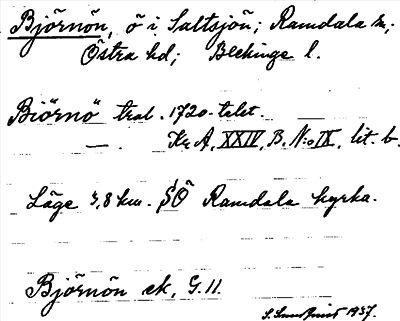 Björnön, ö i Saltsjön; Ramdala sn;
Östra hd; Blekinge l.
Biörnö trol. 1720-talet.
— . Kr. A. XXIV, B. N:o IX, lit. b.
Läge 3,8 km. SÖ Ramdala kyrka.
Björnön ek, G.11.
1937.